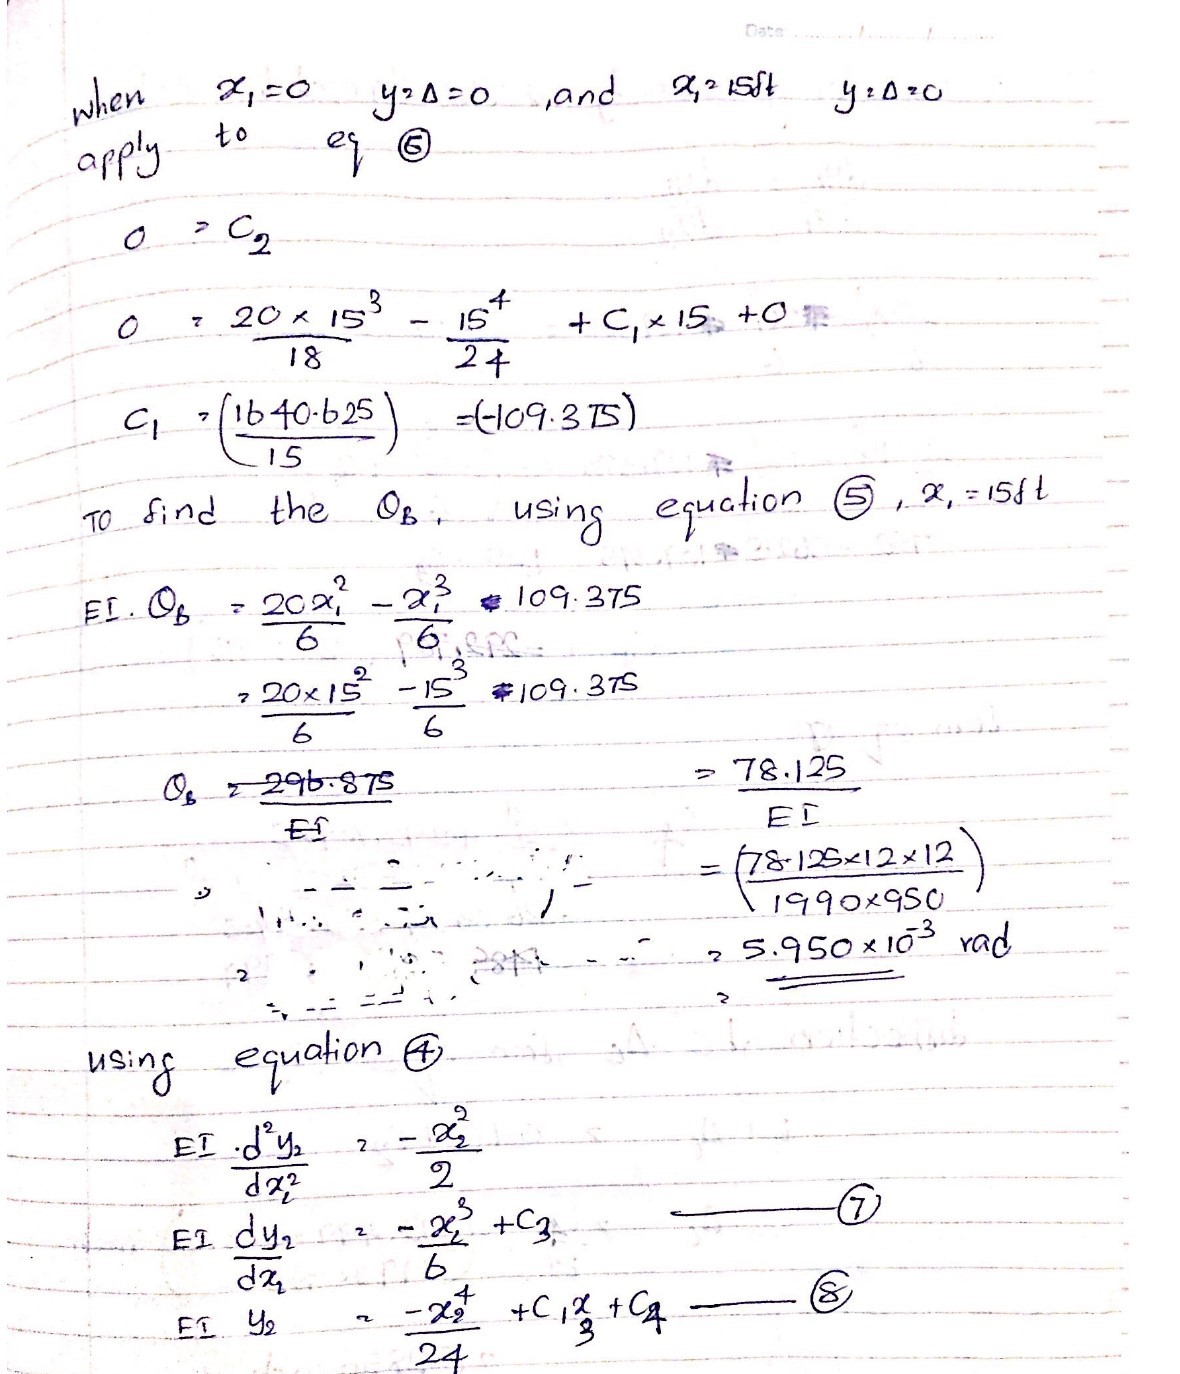 Date ......./......./.......
when x₁=0 y=Δ=0 ,and x₁=15ft y=Δ=0
apply to eq ⑥
0 = C₂
0 = 20×15³/18 - 15⁴/24 + C₁×15 +0
C₁ = (1640.625/15) =(-109.375)
TO find the θB, using equation ⑤, x₁=15ft
EI.θB = 20x₁²/6 - x₁³/6 - 109.375
= 20×15²/6 - 15³/6 - 109.375
θB = 296.875/EI = 78.125/EI
= (78.125×12×12/1990×950)
= 5.950×10⁻³ rad
using equation ④
EI.d²y₂/dx₂² = -x₂²/2
EI dy₂/dx₂ = -x₂³/6 +C₃ ——— ⑦
EI y₂ = -x₂⁴/24 +C₃x +C₄ ——— ⑧